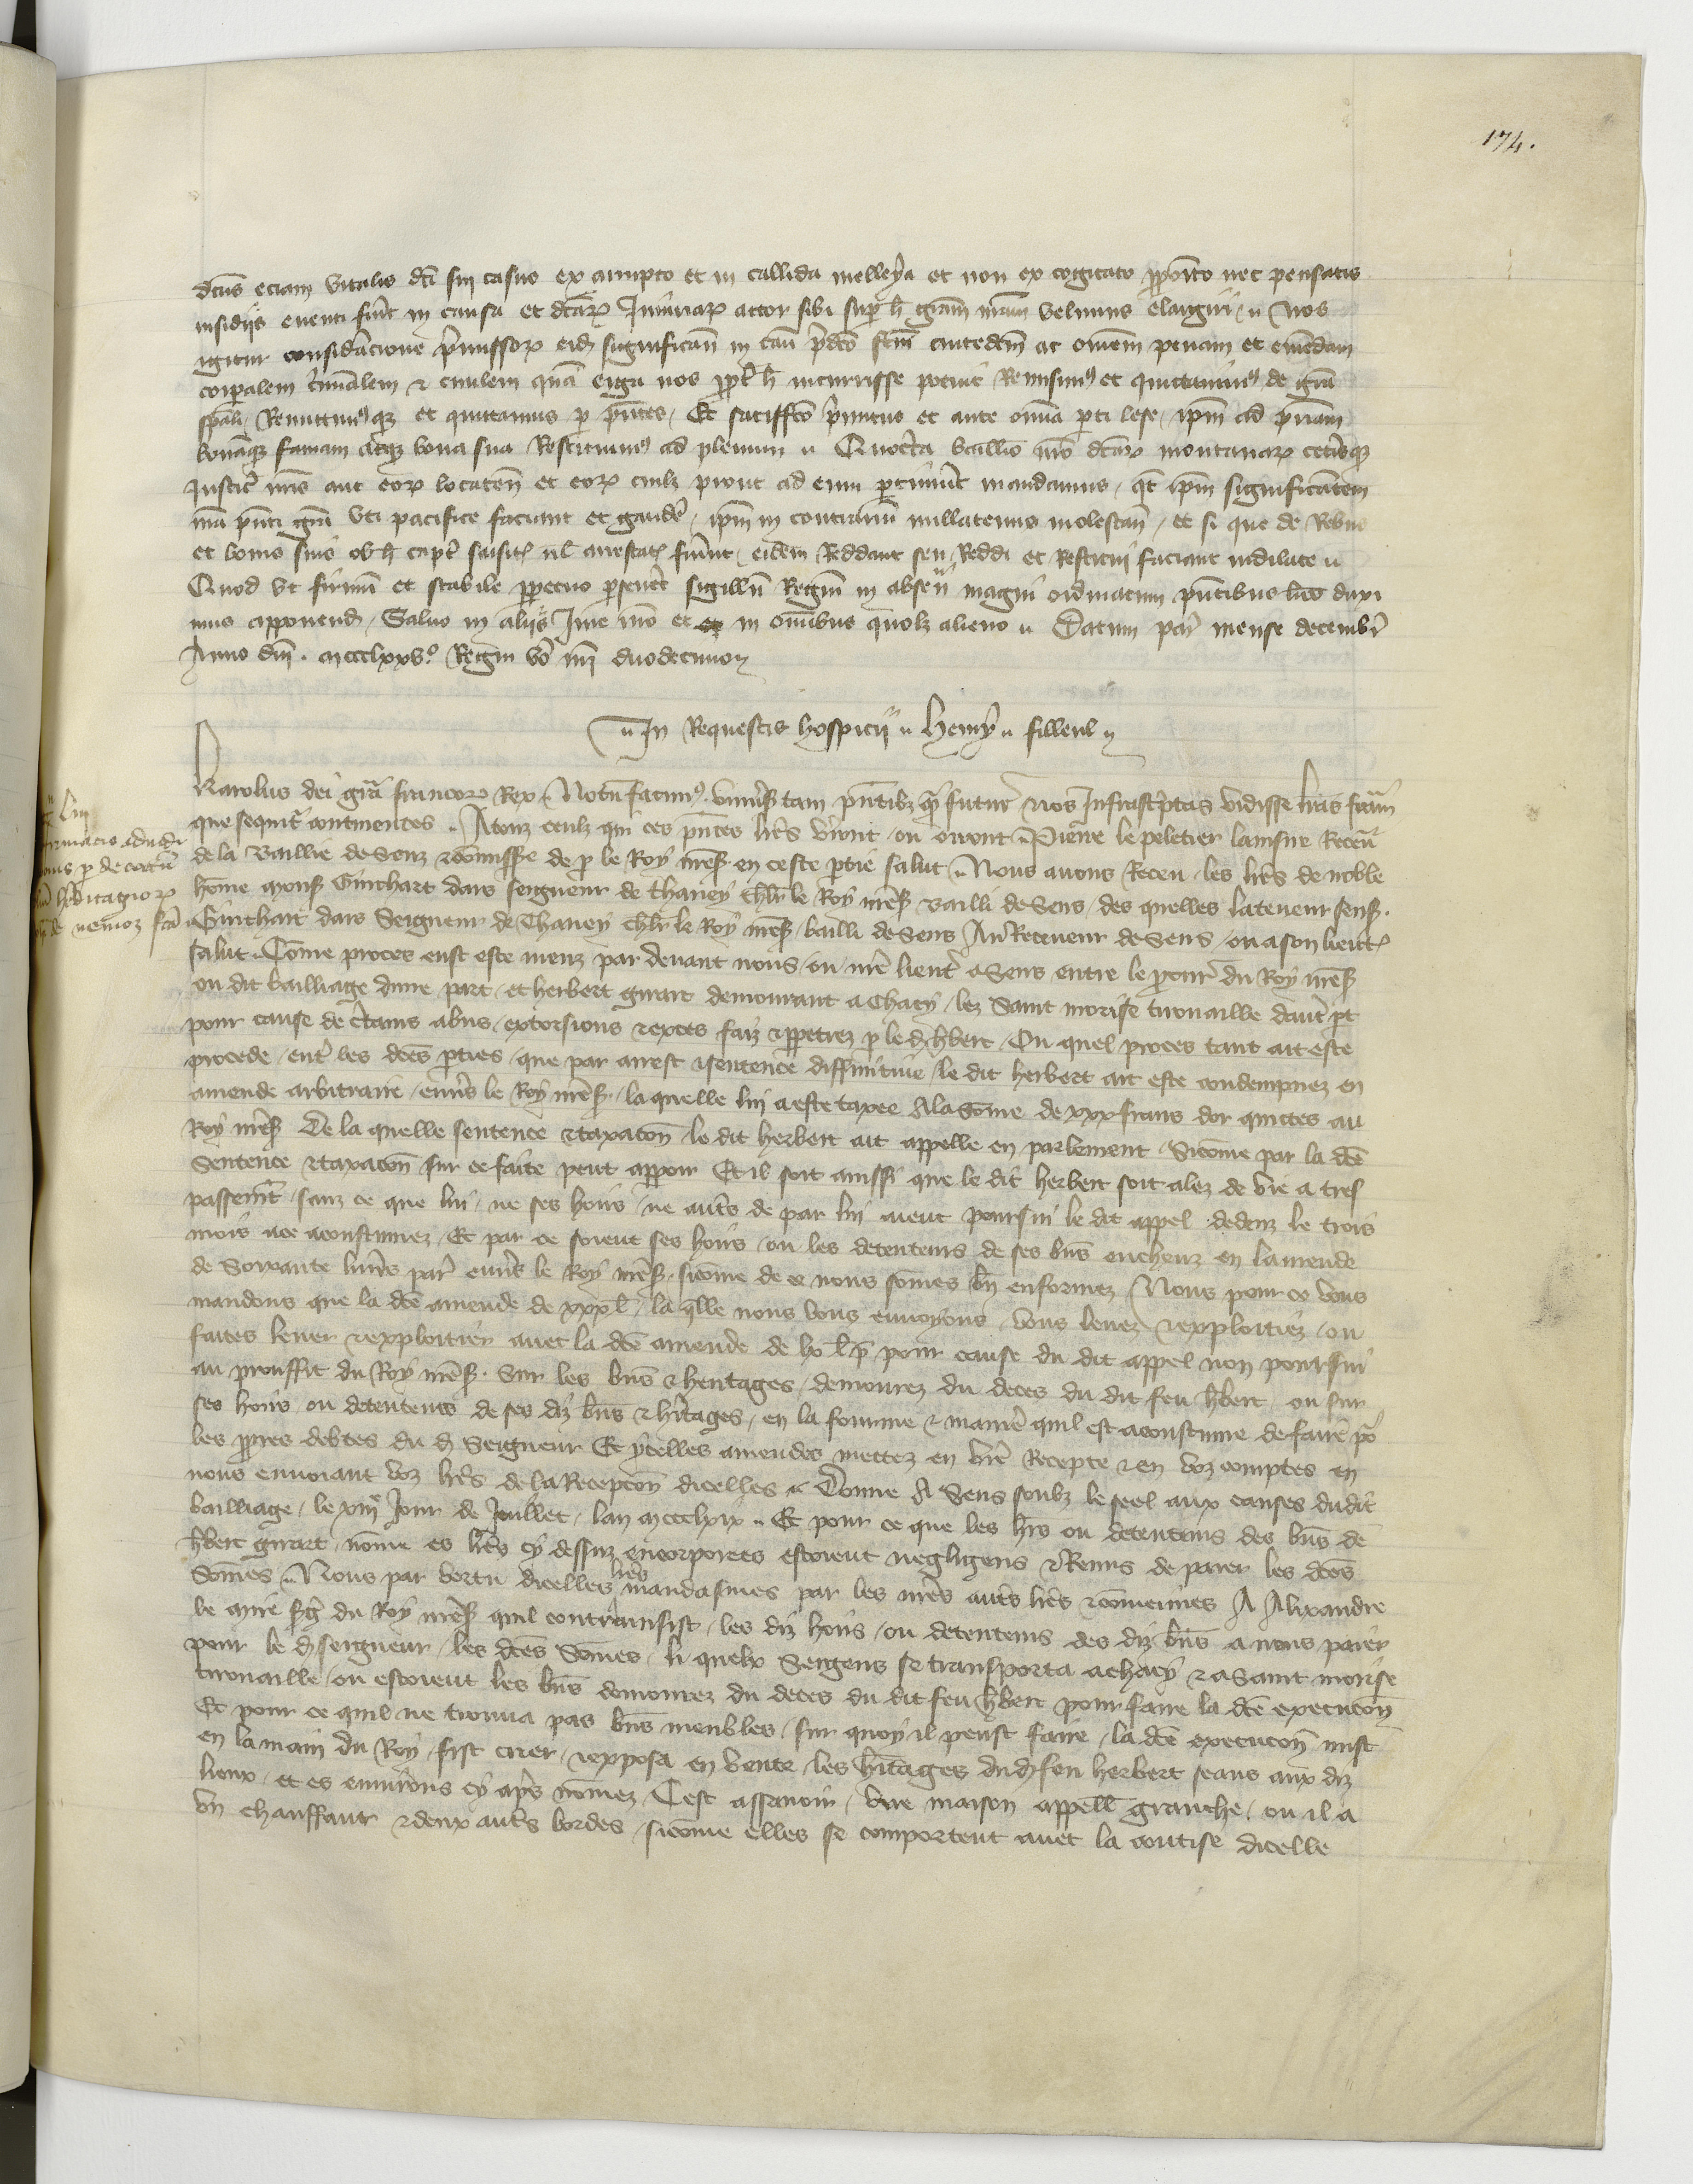 174.
dcus eciam vitalis dci sui casus ex arrupto et in callida melleya et non ex cogitato proposito nec pensatis
insidiis eventi fuit in causa et dcaruz Iniuriaruz actor sibi super h gram nram velimus elargiri. Nos
igitur consideracione premissoruz eid significan in casu predco fcm antedcm ac omem penam et emendam
corporalem criminalem & civilem quam erga nos propter h incurrisse potuit Remisimus et quittavimus de gra
spali Remittimusque et quittamus per pntes. Et satisffco primitus et ante omia parti lese ipm ad priam
bonamque famam atque bona sua Restituimus ad plenum. Quocirca baillivo nro dcaruz montanaruz ceterisque
Justic nris aut eoruz locaten et eoruz cuilz prout ad eum pertinuerit mandamus qt ipm significantem
nra pnti gra uti pacifice faciant et gaudere ipm in contrarium nullatenus molestan et si que de Rebus
et bonis suis ob h capt saisit vl arrestat fuerint eidem Reddant seu Reddi et Restitui faciant indilate.
Quod ut firmum et stabile perpetuo perseveret sigillum Regium in absen magni ordinatum pntibus lris duxi
mus apponend. Salvo in aliis Jure nro et in omibus quolz alieno. Datum par mense decembr
Anno dni. mccclxxvº Regni vo nri duodecimo
In Requestis hospicii. Henry. filleul
Karolus dei gra francoruz Rex Notum facimus universis tam pntibz quam futur Nos Infrascriptas vidisse lras formam
que sequitr continentes. A touz ceulz qui ces pntes lres verront ou orront Pierre le peletier lainsne Recev
de la Baillie de Senz & commisse de p le Roy nres. en ceste ptie salut. Nous avons Receu les lres de noble
home mons Guichart dars seigneur de thaney chlr le Roy nres Bailli de Sens des quelles la teneur sens.
Guichart dars Seigneur de Thaney chlr le Roy nres bailli de Sens Au Receveur de Sens ou a son lieut
salut. Come proces eust este menz par devant nous ou nre lieut a Sens entre le procur du Roy nres
ou dit bailliage dune part et herbert girart demourant a Chacy lez Saint morise tirouaille daut pt
pour cause de ctains abus extorsions & exces faiz & ppetrez p le d hbert Ou quel proces tant ait este
procede ent les dces pties que par arrest & sentence diffinitive le dit herbert ait este condempnez en
amende arbitraire envs le Roy nres. la quelle lui a este taxee A la some de xxx frans dor quictes au
Roy nres De la quelle sentence & taxacon le dit herbert ait appelle en parlement Sicome par la dce
Sentence & taxacon sur ce faite peut apparoir Et il soit aussi que le dit herbert soit alez de vie a tres
passement sanz ce que lui ne ses hoirs ne auts de par lui aient poursui le dit appel dedenz le trois
mois ace acoustumez Et par ce soient ses hoirs ou les detenteurs de ses bns encheuz en lamende
de Soixante livres par envs le Roy nres. sicome de ce nous somes bn enformez Nous pour ce vous
mandons que la dce amende de xxx l la qlle nous vous envoyons vous levez & exploitiez ou
faites lever & exploitier avec la dce amende de lx l p pour cause du dit appel non poursui
au prouffit du Roy nres. Sur les bns & heritages demourez du deces du dit feu hbert ou sur
ses hoirs ou detenteurs de ses diz bns & hritages en la fourme & maniere quil est acoustume de faire po
les ppres debtes du d Seigneur Et ycelles amendes mettez en vre Recepte & en voz comptes en
nous envoiant voz lres de la Recepcon dicelles. Donne A Sens soubz le seel aux causes dudit
bailliage le xiiie Jour de Juillet lan mccclxix. Et pour ce que les hrs ou detenteurs des bns de
hbert girart nome es lres cy dessus encorporees estoient negligens & Remis de paier les dces
Somes Nous par vertu dicelles lres mandasmes par les nres auts lres & comeismes A Alixandre
le mire Sg du Roy nres quil contrainsist les diz hoirs ou detenteurs des diz bns a nous paier
pour le d seigneur les dces Somes li quelx Sergens se transporta a chacy & a Saint morise
tirouaille ou estoient les bns demourez du deces du dit feu hbert pour faire la dce execucon
Et pour ce quil ne trouva pas bns meubles sur quoy il peust faire la dce execucon mist
en la main du Roy fist crier & exposa en vente les hritages du d feu herbert seans aux diz
lieux et es environs cy aprs nomez Cest assavoir une maison appell granche ou il a
un chauffaut & deux auts bordes sicome elles se comportent avec la contise dicelle